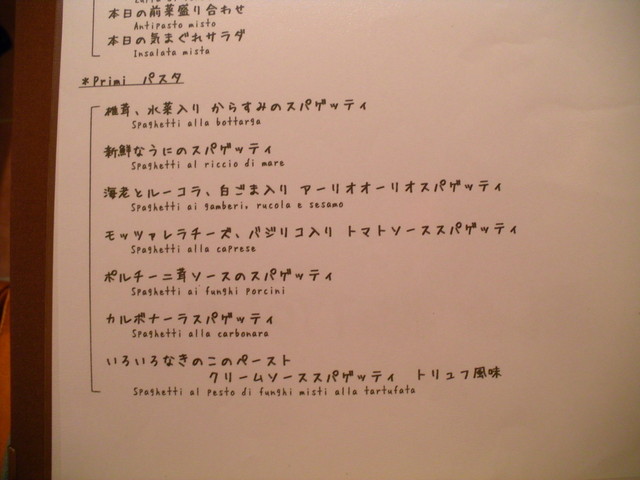 本日の前菜盛り合わせ
Antipasto misto
本日の気まぐれサラダ
Insalata mista
*Primi パスタ
椎茸、水菜入り からすみのスパゲッティ
Spaghetti alla bottarga
新鮮なうにのスパゲッティ
Spaghetti al riccio di mare
海老とルーコラ、白ごま入り アーリオオーリオスパゲッティ
Spaghetti ai gamberi, rucola e sesamo
モッツァレラチーズ、バジリコ入り トマトソーススパゲッティ
Spaghetti alla caprese
ポルチーニ茸ソースのスパゲッティ
Spaghetti ai funghi porcini
カルボナーラスパゲッティ
Spaghetti alla carbonara
いろいろなきのこのペースト
クリームソーススパゲッティ トリュフ風味
Spaghetti al pesto di funghi misti alla tartufata